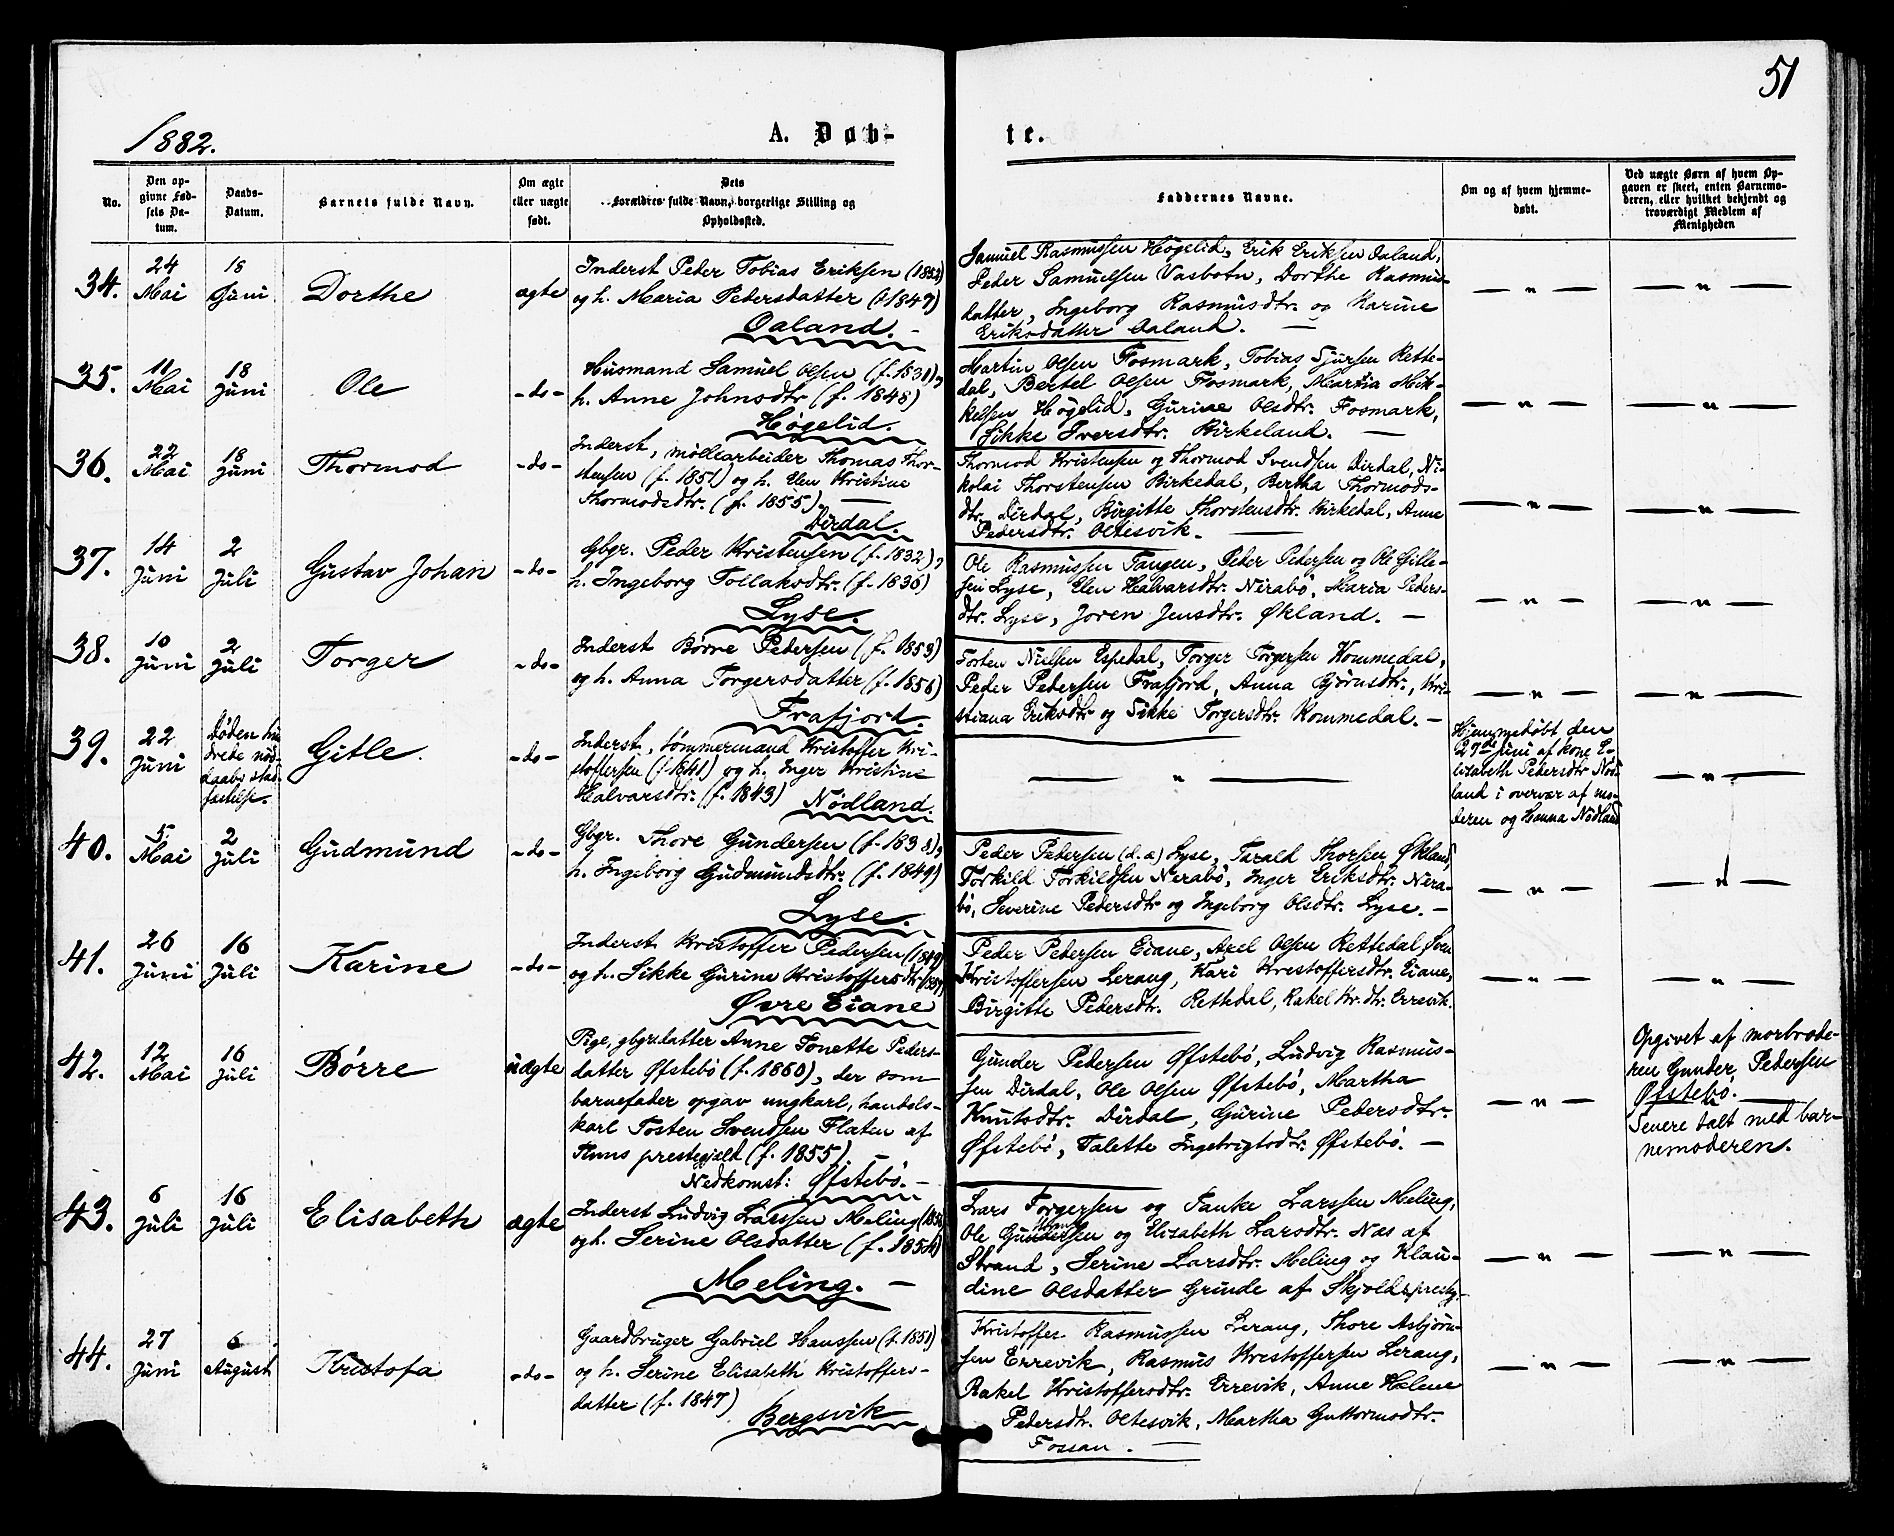 51
1882.
A. Døb-
te.
No.
Den op-
givne Fød-
sels Da-
tum.
Daabs-
Datum.
Barnets fulde Navn.
Om ægte
eller uægte
født.
Dets
Forældres fulde Navn, borgerlige Stilling og
Opholdssted.
Faddernes Navne.
Om og af hvem hjemme-
døbt.
Ved uægte Børn af hvem Op-
gaven er skeet, enten Barnemo-
deren, eller hvilket bekjendt og
troværdigt Medlem af
Menigheden
34.
24
Mai
18
Juni
Dorthe
ægte
Inderst Peder Tobias Eriksen (1852)
og h. Maria Pedersdatter (f 1847)
Oaland. -
Samuel Rasmussen Høgelid, Erik Eriksen Oaland,
Peder Samuelsen Vasbotn, Dorthe Rasmus-
datter, Ingeborg Rasmusdtr. og Karine
Eriksdatter Oaland. —
— " —
— " —
35.
11
Mai
18
Juni
Ole
- do -
Husmand Samuel Olsen (f. 1831),
h. Anne Johnsdtr (f. 1848)
Høgelid.
Martin Olsen Fosmark, Tobias Sjursen Rette-
dal, Bertel Olsen Fosmark, Martia Mik-
kelsen Høgelid, Gurine Olsdtr. Fosmark,
Sikke Iversdtr. Birkeland. —
— " —
— " —
36.
22
Mai
18
Juni
Thormod
- do -
Inderst, møllearbeider Thomas Thor-
stensen (f. 1851) og h. Elen Kristine
Thormodsdtr. (f. 1855). —
Dirdal.
Thormod Kristensen og Thormod Svendsen Dirdal, Ni-
kolai Thorstensen Birkedal, Bertha Thormods-
dtr. Dirdal, Birgitte Thorstensdtr. Birkedal, Anne
Pedersdtr. Oltesvik. —
— " —
— " —
37.
14
Juni
2
Juli
Gustav Johan
- do -
Gbgr. Peder Kristensen (f. 1832),
h. Ingeborg Tollaksdtr. (f. 1836)
Lyse.
Ole Rasmussen Fangen, Peder Pedersen og Ole Gitle-
sen Lyse, Elen Halvarsdtr. Nerabø, Maria Peders-
dtr. Lyse, Joren Jensdtr. Økland. -
— " —
— " —
38.
10
Juni
2
Juli
Torger
- do -
Inderst Børre Pedersen (f. 1853)
og h. Anna Torgersdatter (f. 1856)
Frafjord.
Torten Nielsen Espedal, Torger Torgersen Kommedal,
Peder Pedersen Frafjord, Anna Bjørnsdtr., Kri-
stiana Eriksdtr og Sikke Torgersdtr. Kommedal. -
— " —
— " —
39.
22
Juni
Døden hin
drede nød-
daabs stad-
fæstelse.
Gitle.
- do -
Inderst, tømmermand Kristoffer Kri-
stoffersen (f 1841) og h. Inger Kristine
Halvarsdtr. (f. 1843)
Nødland.
— " —
Hjemmedøbt den
27de juni af kone E-
lisabeth Pedersdtr Nød-
land i overvær af mo-
deren og Hanna Nødland
— " —
40.
5
Mai
2
Juli
Gudmund
- do -
Gbgr. Thore Gundersen (f. 1838),
h. Ingeborg Gudmundsdtr. (f. 1849)
Lyse.
Peder Pedersen (d. æ) Lyse, Tarald Thorsen Økland,
Torkild Torkildsen Nerabø, Inger Eriksdtr. Nera-
bø, Severine Pedersdtr og Ingeborg Olsdtr. Lyse. -
— " —
— " —
41.
26
Juni
16
Juli
Karine
- do -
Inderst Kristoffer Pedersen (1849)
og h. Sikke Gurine Kristoffersdtr
Øvre Eiane
Peder Pedersen Eiane, Axel Olsen Rettedal, Sven
Kristoffersen Lerang, Kari Kristoffersdtr. Eiane,
Birgitte Pedersdtr. Rettedal, Rakel Kr. dtr. Errevik.
— " —
— " —
42.
12
Mai
16
Juli
Børre
uægte
Pige, gbgr.datter Anne Tonette Peders-
datter Øfstebø (f. 1860), der som
barnefader opgav ungkarl, handels-
karl Tosten Svendsen Flaten af
Finns prestegjæld (f. 1855).
Nedkomst: Øfstebø. -
Gunder Pedersen Øfstebø, Ludvig Rasmus-
sen Dirdal, Ole Olsen Øfstebø, Martha
Knutsdtr. Dirdal, Gurine Pedersdtr.
Øfstebø, Talette Ingebrigtsdtr. Øfstebø. -
— " —
Opgivet af morbrode-
ren Gunder Pedersen
Øfstebø. —
Senere talt med bar-
nemoderen.
43.
6
Juli
16
Juli
Elisabeth
ægte
Inderst Ludvig Larssen Meling
og h. Serine Olsdatter (f. 1854)
Meling. -
Lars Torgersen og Tanke Larssen Meling,
Ole Gundersen og Elisabeth Larsdtr. Næs af
Strand, Serine Larsdtr. Meling og Klau-
dine Olsdatter Grinde af Skjolds prestg.
— " —
— " —
44.
27
Juni
6
August
Kristofa
- do -
Gaardbruger Gabriel Hanssen (f. 1851)
og h. Serine Elisabeth Kristoffers-
datter (f. 1847)
Bergsvik
Kristoffer Rasmussen Lerang, Thore Asbjørn-
sen Errevik, Rasmus Kristoffersen Lerang,
Rakel Kristoffersdtr. Errevik, Anne Helene
Pedersdtr. Oltesvik, Martha Guttormsdtr.
Fossan. —
— " —
— " —